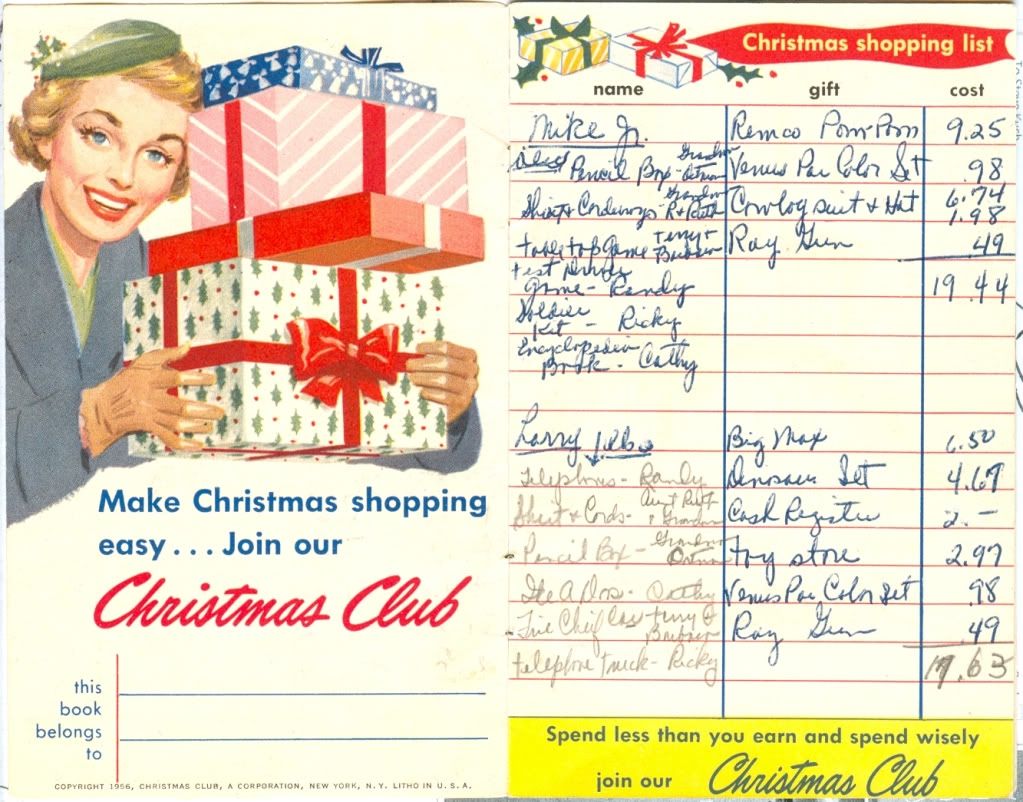 Make Christmas shopping
easy... Join our
Christmas Club
this
book
belongs
to
COPYRIGHT 1956, CHRISTMAS CLUB, A CORPORATION, NEW YORK, N.Y. LITHO IN U.S.A.
Christmas shopping list
name gift cost
Mike Jr. Remco Pom Pom 9.25
Pencil Box - Grandma Venus Par Color Set .98
Shirt & Corduroys - Grandma Cowboy suit & Hat 6.74
1.98
table top Game Terry & Barbara Ray Gun .49
test Driver
Game - Randy 19.44
Soldier
Kit - Ricky
Encyclopedia
Book - Cathy
Larry Big Max 6.50
Telephones - Randy Dinosaur Set 4.67
Shirt & Cords - Aunt Ruth & Grandma Cash Register 2.-
Pencil Box - Grandma toy store 2.97
Cathy Venus Par Color Set .98
Fire Chief Terry & Barbara Ray Gun .49
telephone truck - Ricky 17.63
Spend less than you earn and spend wisely
join our Christmas Club